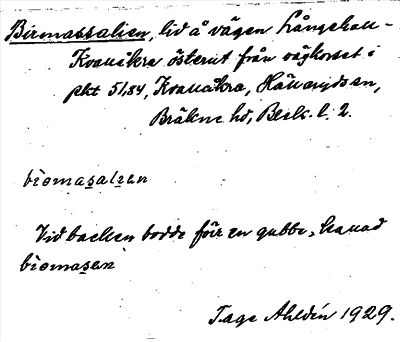 Birmassalien, lid å vägen Långehall-
Kvarnåkra österut från vägkorset i
pkt 51,84, Kvarnåkra, Hällaryds sn,
Bräkne hd, Blek. l. 2.
biomasalien
Vid backen bodde förr en gubbe, kallad
biomasen
Tage Ahldén 1929.